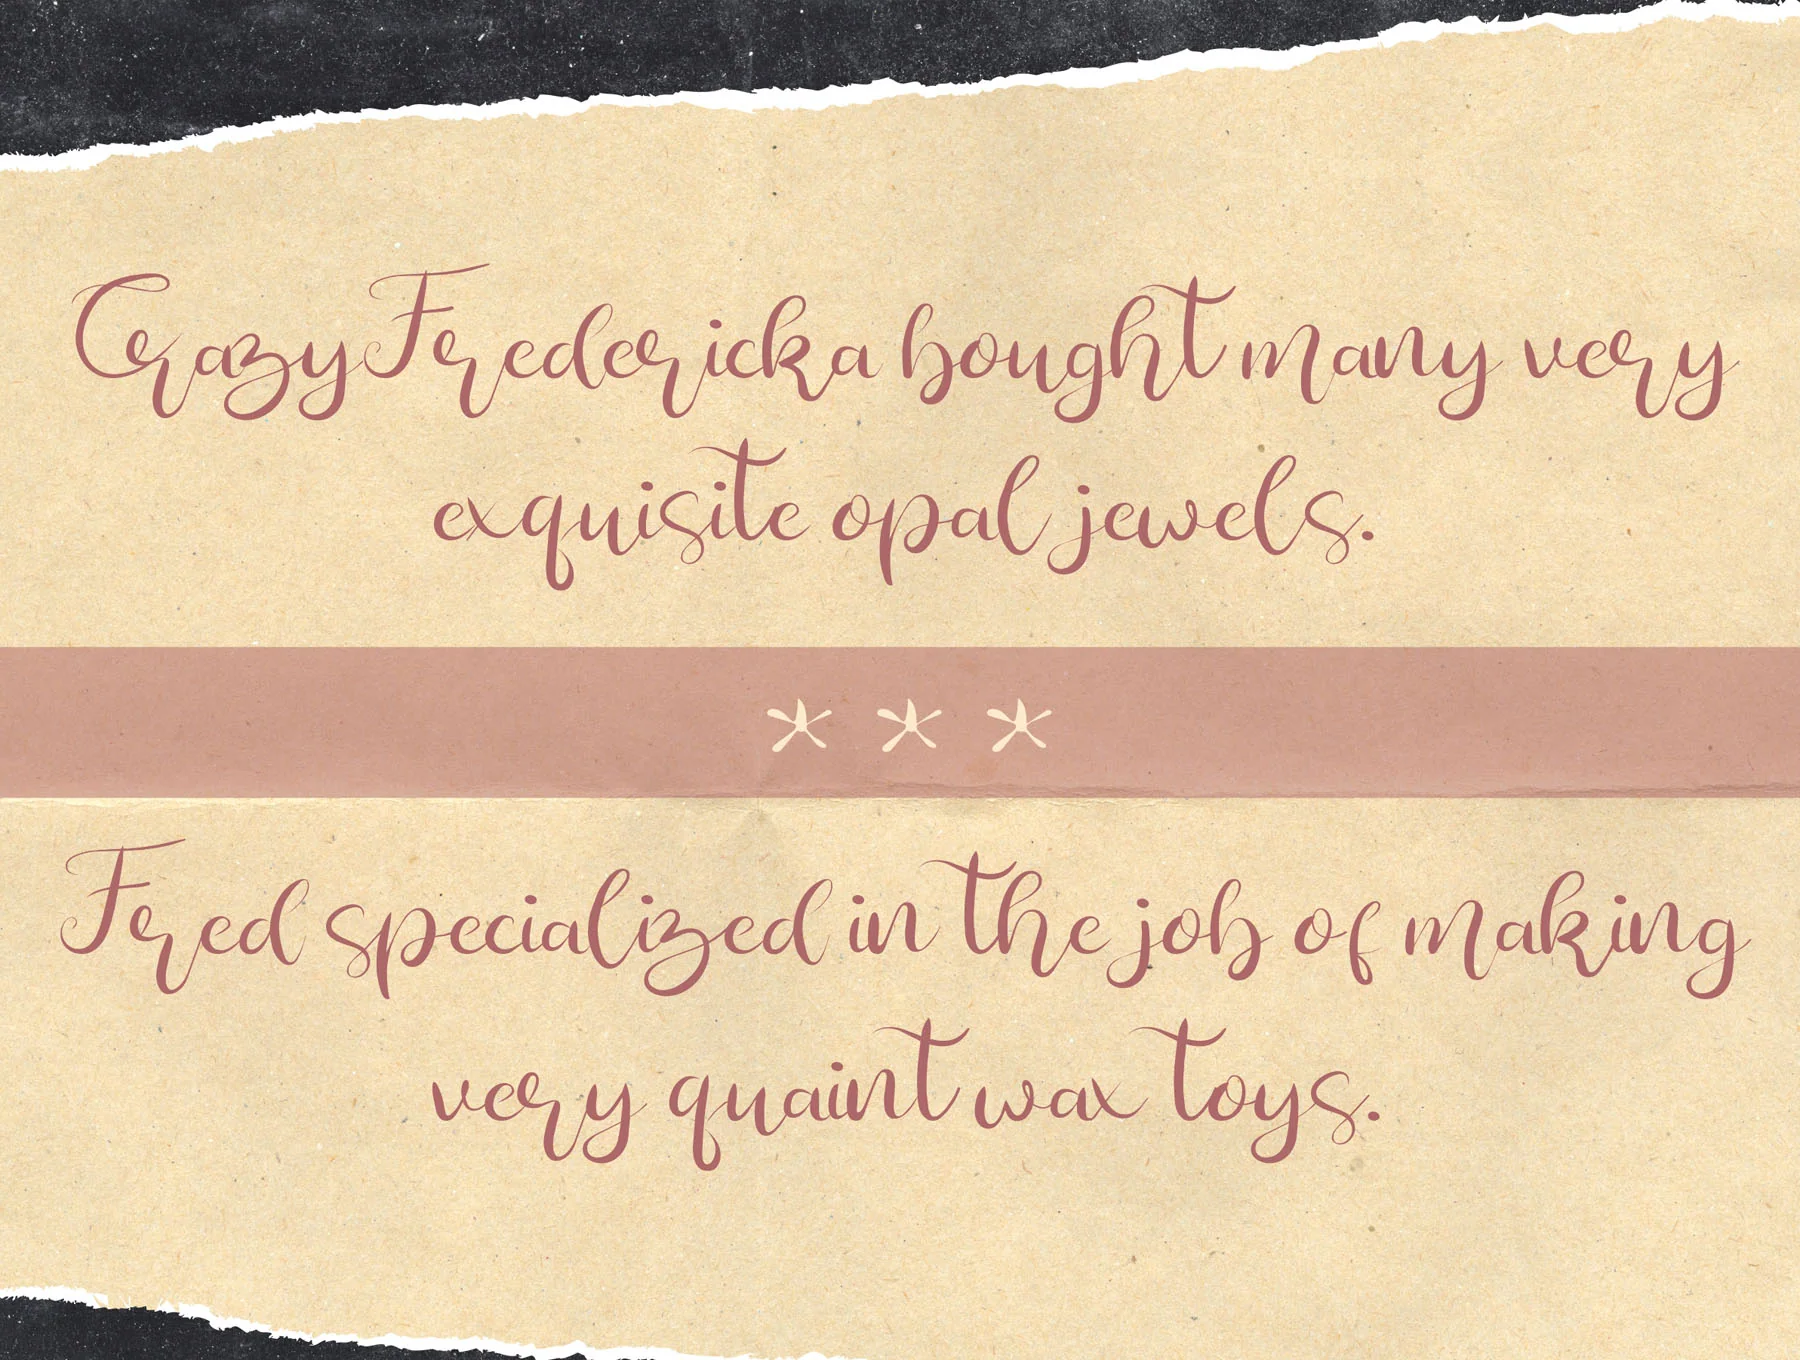 Crazy Fredericka bought many very
exquisite opal jewels.
* * *
Fred specialized in the job of making
very quaint wax toys.